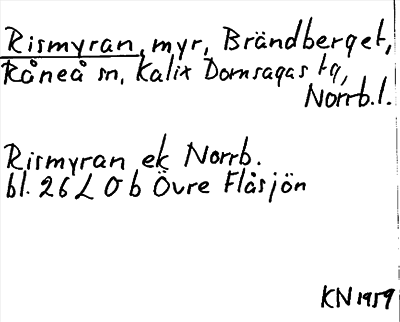 Rismyran, myr, Brändberget,
Råneå sn, Kalix Domsagas tg,
Norrb.l.
Rismyran ek Norrb.
bl. 26 L 0 b Övre Flåsjön
KN 1959